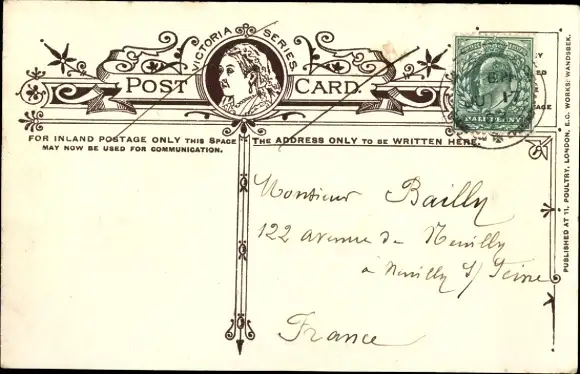 VICTORIA SERIES
POST CARD.
FOR INLAND POSTAGE ONLY THIS SPACE
MAY NOW BE USED FOR COMMUNICATION.
THE ADDRESS ONLY TO BE WRITTEN HERE.
HALFPENNY
Monsieur Bailly
122 avenue de Neuilly
à Neuilly S/ Seine
France
PUBLISHED AT 11, POULTRY, LONDON, E.C. WORKS: WANDSBEK.